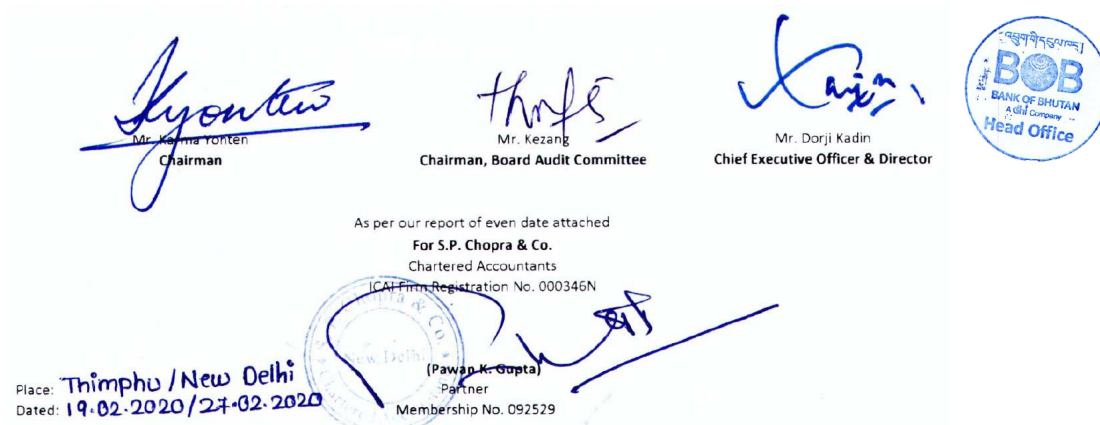 Mr. Karma Yonten
Chairman
Mr. Kezang
Chairman, Board Audit Committee
Mr. Dorji Kadin
Chief Executive Officer & Director
BOB
BANK OF BHUTAN
A dhi Company
Head Office
As per our report of even date attached
For S.P. Chopra & Co.
Chartered Accountants
ICAI Firm Registration No. 000346N
New Delhi
(Pawan K. Gupta)
Partner
Membership No. 092529
Place: Thimphu / New Delhi
Dated: 19.02.2020/27.02.2020